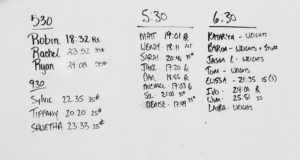 530
Robin 18:32 RX
Rachel 23:52
Ryan 24:08
930
Sylvie 22.35 25#
TIFFANY 20:20 25#
SAVETHA 23:33 25#
5:30
MATT 19:01
WENDY 19:11
SARAH 20:46
JAKE 17:20
DAN 18:55
MICHAEL 17:03
21:00
DENISE 17:49
6:30
KATHRYN - WEIGHTS
BARON - WEIGHTS +
JASON L - WEIGHTS
TOM - WEIGHTS
ELISSA - 21:35 15
IVO - 24:01
25:51
LAURA - WEIGHTS